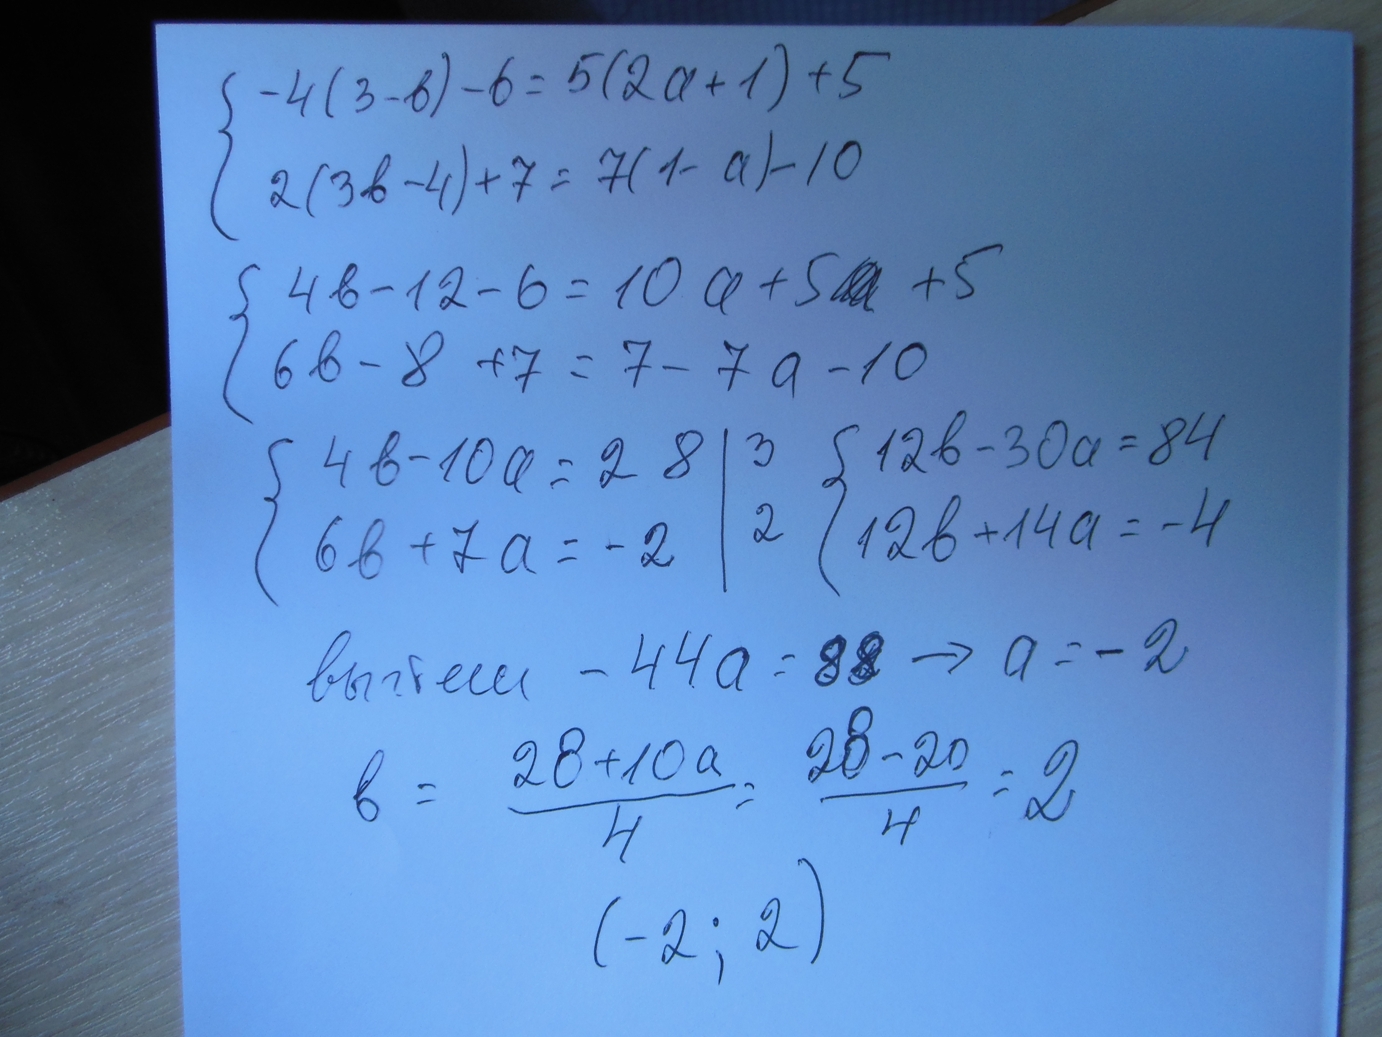 { -4(3-в)-6=5(2a+1)+5
2(3в-4)+7=7(1-a)-10
{ 4в-12-6=10a+5 +5
6в-8 +7=7-7a-10
{ 4в-10a=28 | 3 { 12в-30a=84
6в+7a=-2 | 2 12в+14a=-4
вычтем -44a=88 → a=-2
в = (28+10a)/4 = (28-20)/4 = 2
(-2; 2)